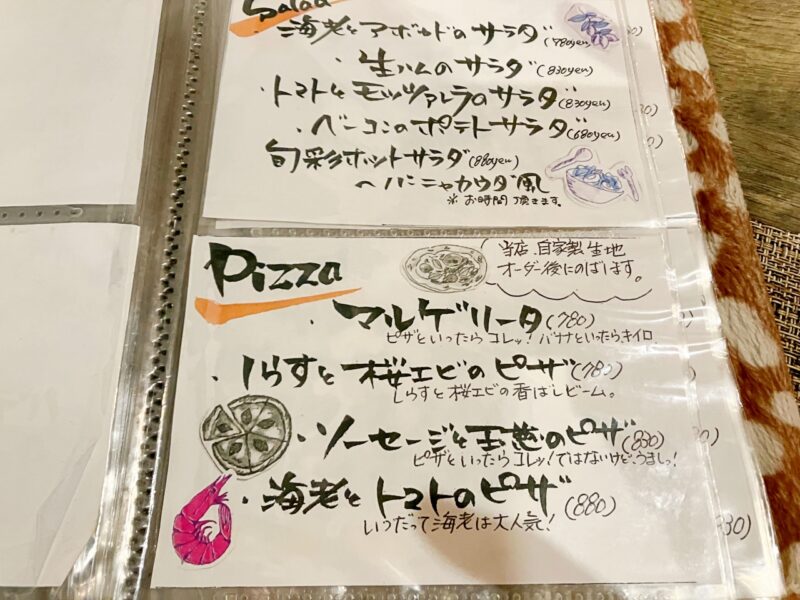 Salad
・海老とアボカドのサラダ(780yen)
・生ハムのサラダ(830yen)
・トマトとモッツァレラのサラダ(830yen)
・ベーコンのポテトサラダ(680yen)
旬彩ホットサラダ(880yen)
〜バーニャカウダ風
※お時間頂きます。
Pizza
当店、自家製生地
オーダー後にのばします。
・マルゲリータ(780)
ピザといったらコレッ!バナナといったらキイロ
・しらすと桜エビのピザ(780)
しらすと桜エビの香ばしビーム。
・ソーセージと玉葱のピザ(830)
ピザといったらコレッ!ではないけど、うましっ!
・海老とトマトのピザ(880)
いつだって海老は大人気!